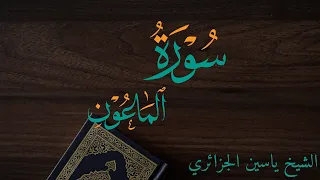 سُورَةُ
المَاعُونِ
الشيخ ياسين الجزائري